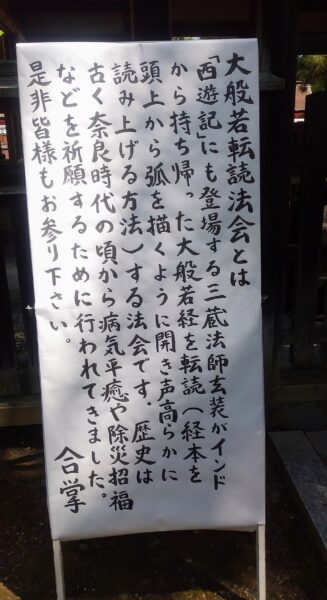 大般若転読法会とは
「西遊記」にも登場する三蔵法師玄装がインド
から持ち帰った大般若経を転読（経本を
頭上から弧を描くように開き声高らかに
読み上げる方法）する法会です。歴史は
古く奈良時代の頃から病気平癒や除災招福
などを祈願するために行われてきました。
是非皆様もお参り下さい。
合掌